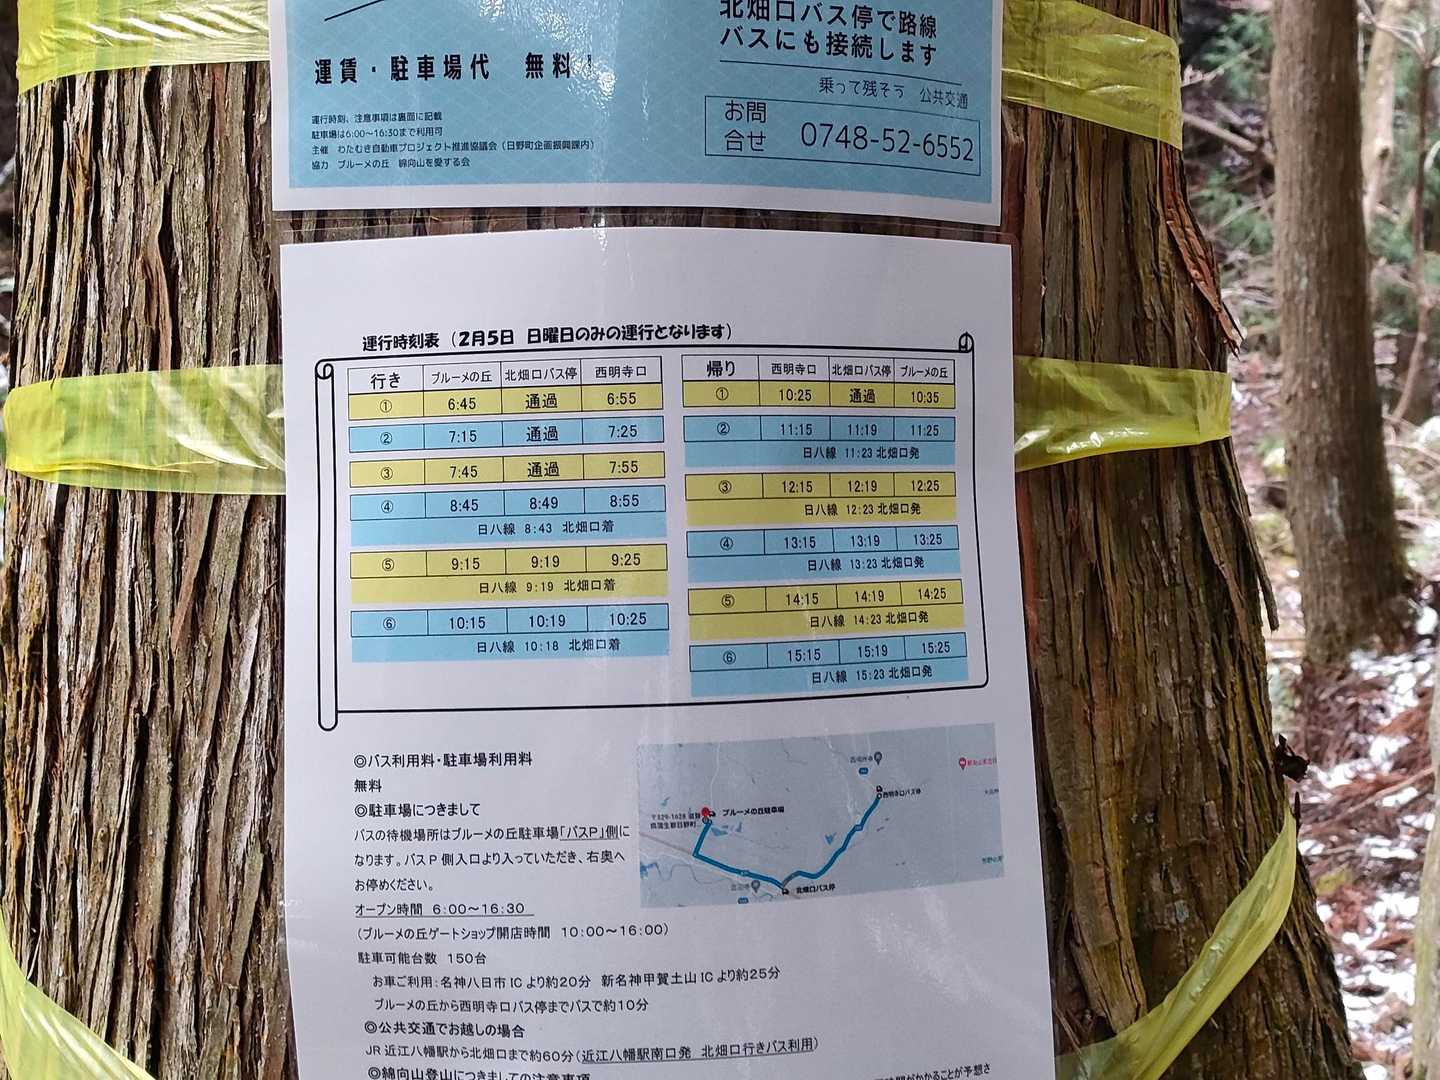 北畑口バス停で路線
バスにも接続します
運賃・駐車場代 無料！
乗って残そう 公共交通
運行時刻、注意事項は裏面に記載
駐車場は6:00～16:30まで利用可
主催 わたむき自動車プロジェクト推進協議会（日野町企画振興課内）
協力 ブルーメの丘 綿向山を愛する会
お問合せ 0748-52-6552
運行時刻表（2月5日 日曜日のみの運行となります）
行き ブルーメの丘 北畑口バス停 西明寺口
① 6:45 通過 6:55
② 7:15 通過 7:25
③ 7:45 通過 7:55
④ 8:45 8:49 8:55
日八線 8:43 北畑口着
⑤ 9:15 9:19 9:25
日八線 9:19 北畑口着
⑥ 10:15 10:19 10:25
日八線 10:18 北畑口着
帰り 西明寺口 北畑口バス停 ブルーメの丘
① 10:25 通過 10:35
② 11:15 11:19 11:25
日八線 11:23 北畑口発
③ 12:15 12:19 12:25
日八線 12:23 北畑口発
④ 13:15 13:19 13:25
日八線 13:23 北畑口発
⑤ 14:15 14:19 14:25
日八線 14:23 北畑口発
⑥ 15:15 15:19 15:25
日八線 15:23 北畑口発
◎バス利用料・駐車場利用料
無料
◎駐車場につきまして
バスの待機場所はブルーメの丘駐車場「バスP」側に
なります。バスP側入口より入っていただき、右奥へ
お停めください。
オープン時間 6:00～16:30
（ブルーメの丘ゲートショップ開店時間 10:00～16:00）
駐車可能台数 150台
お車ご利用：名神八日市ICより約20分 新名神甲賀土山ICより約25分
ブルーメの丘から西明寺口バス停までバスで約10分
◎公共交通でお越しの場合
JR近江八幡駅から北畑口まで約60分（近江八幡駅南口発 北畑口行きバス利用）
◎綿向山登山につきましての注意事項
時間がかかることが予想さ
〒529-1628 滋賀
県蒲生郡日野町
ブルーメの丘駐車場
西明寺口バス停
北畑口バス停